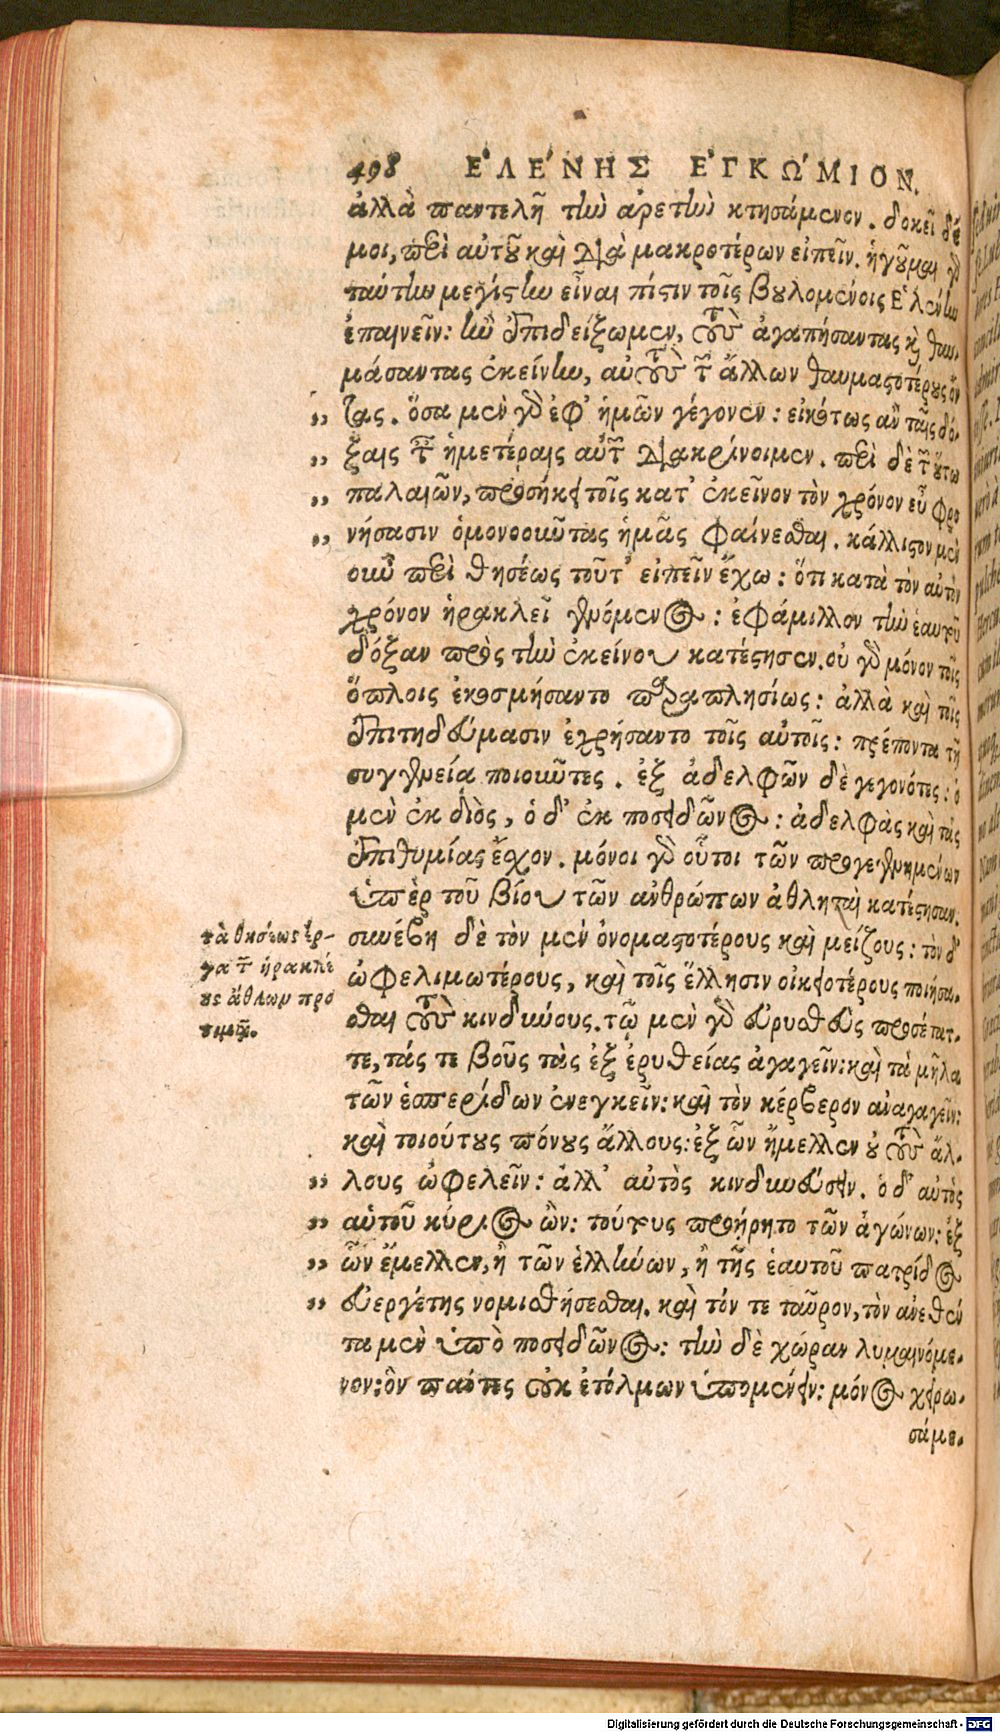 498 ἙΛΈΝΗΣ ἘΓΚΏΜΙΟΝ.
ἀλλὰ παντελῆ τὴν ἀρετὴν κτησάμενον. δοκεῖ δέ
μοι, περὶ αὐτοῦ καὶ διὰ μακροτέρων εἰπεῖν. ἡγοῦμαι γὰρ
ταύτην μεγίστην εἶναι πίστιν τοῖς βουλομένοις Ἑλένην
ἐπαινεῖν: ἢν ἐπιδείξωμεν, τοὺς ἀγαπήσαντας καὶ θαυ-
μάσαντας ἐκείνην, αὐτοὺς τῶν ἄλλων θαυμαστοτέρους ὄν
„ τας. ὅσα μὲν γὰρ ἐφ' ἡμῶν γέγονεν: εἰκότως ἂν ταῖς δό-
„ ξαις ταῖς ἡμετέραις αὐτὰ διακρίνοιμεν. περὶ δὲ τῶν οὕτω
„ παλαιῶν, προσήκει τοῖς κατ' ἐκεῖνον τὸν χρόνον εὖ φρο
„ νήσασιν ὁμονοοῦντας ἡμᾶς φαίνεσθαι. κάλλιστον μὲν
οὖν περὶ θησέως τοῦτ' εἰπεῖν ἔχω: ὅτι κατὰ τὸν αὐτὸν
χρόνον ἡρακλεῖ γενόμενος: ἐφάμιλλον τὴν ἑαυτοῦ
δόξαν πρὸς τὴν ἐκείνου κατέστησεν. οὐ γὰρ μόνον τοῖς
ὅπλοις ἐκοσμήσαντο παραπλησίως: ἀλλὰ καὶ τοῖς
ἐπιτηδεύμασιν ἐχρήσαντο τοῖς αὐτοῖς: πρέποντα τῇ
συγγενείᾳ ποιοῦντες. ἐξ ἀδελφῶν δὲ γεγονότες: ὁ
μὲν ἐκ διὸς, ὁ δ' ἐκ ποσειδῶνος: ἀδελφὰς καὶ τὰς
ἐπιθυμίας ἔχον. μόνοι γὰρ οὗτοι τῶν προγεγενημένων
ὑπὲρ τοῦ βίου τῶν ἀνθρώπων ἀθληταὶ κατέστησαν.
συνέβη δὲ τὸν μὲν ὀνομαστοτέρους καὶ μείζους: τὸν δ'
ὠφελιμωτέρους, καὶ τοῖς ἕλλησιν οἰκειοτέρους ποιήσα-
σθαι τοὺς κινδύνους. τῷ μὲν γὰρ εὐρυσθεὺς προσέταττ-
τε, τάς τε βοῦς τὰς ἐξ ἐρυθείας ἀγαγεῖν: καὶ τὰ μῆλα
τῶν ἑσπερίδων ἐνεγκεῖν: καὶ τὸν κέρβερον ἀναγαγεῖν:
καὶ τοιούτους πόνους ἄλλους: ἐξ ὧν ἤμελλεν οὐ τοὺς ἄλ-
„ λους ὠφελεῖν: ἀλλ' αὐτὸς κινδυνεύσειν. ὁ δ' αὐτὸς
„ αὑτοῦ κύριος ὢν: τούτους προῄρητο τῶν ἀγώνων: ἐξ
„ ὧν ἔμελλεν, ἢ τῶν ἑλλήνων, ἢ τῆς ἑαυτοῦ πατρίδος
„ εὐεργέτης νομισθήσεσθαι. καὶ τόν τε ταῦρον, τὸν ἀνεθέν
τα μὲν ὑπὸ ποσειδῶνος: τὴν δὲ χώραν λυμαινόμε-
νον: ὃν πάντες οὐκ ἐτόλμων ὑπομένειν: μόνος χειρω-
σάμε-
τὰ θησέως ἔρ-
γα τῶν ἡρακλέ
ους ἄθλων προ
τιμᾷ.
Digitalisierung gefördert durch die Deutsche Forschungsgemeinschaft - DFG